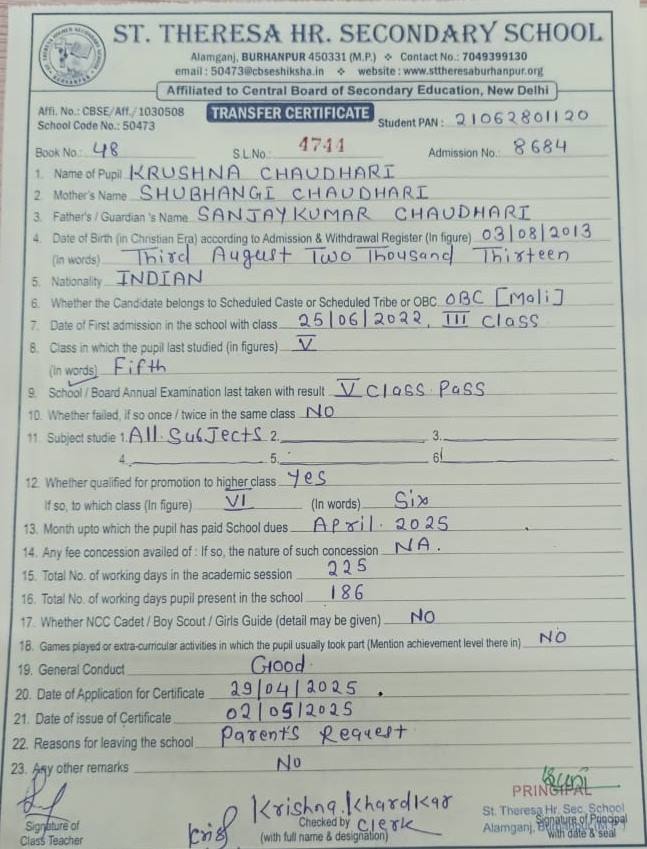 ST. THERESA HR. SECONDARY SCHOOL
Alamganj, BURHANPUR 450331 (M.P.) ❖ Contact No.: 7049399130
email : 50473@cbseshiksha.in ❖ website : www.sttheresaburhanpur.org
Affiliated to Central Board of Secondary Education, New Delhi
Affi. No.: CBSE/Aff./1030508
TRANSFER CERTIFICATE
School Code No.: 50473
Student PAN: 21062801120
Book No: 48 S.L.No. 4744 Admission No. 8684
1. Name of Pupil KRUSHNA CHAUDHARI
2. Mother's Name SHUBHANGI CHAUDHARI
3. Father's / Guardian 's Name SANJAYKUMAR CHAUDHARI
4. Date of Birth (in Christian Era) according to Admission & Withdrawal Register (In figure) 03/08/2013
(in words) Third August Two Thousand Thirteen
5. Nationality INDIAN
6. Whether the Candidate belongs to Scheduled Caste or Scheduled Tribe or OBC OBC [Mali]
7. Date of First admission in the school with class 25/06/2022, III Class
8. Class in which the pupil last studied (in figures) V
(in words) Fifth
9. School / Board Annual Examination last taken with result V Class Pass
10. Whether failed, if so once / twice in the same class NO
11. Subject studie 1. All Subjects 2. 3.
4. 5. 6
12. Whether qualified for promotion to higher class Yes
If so, to which class (In figure) VI (In words) Six
13. Month upto which the pupil has paid School dues April. 2025
14. Any fee concession availed of : If so, the nature of such concession NA.
15. Total No. of working days in the academic session 225
16. Total No. of working days pupil present in the school 186
17. Whether NCC Cadet / Boy Scout / Girls Guide (detail may be given) NO
18. Games played or extra-curricular activities in which the pupil usually took part (Mention achievement level there in) NO
19. General Conduct Good
20. Date of Application for Certificate 29/04/2025
21. Date of issue of Certificate 02/05/2025
22. Reasons for leaving the school Parent's Request
23. Any other remarks No
Krishna Khardkar
PRINCIPAL
St. Theresa Hr. Sec. School
Signature of Class Teacher
Checked by Clerk
(with full name & designation)
Signature of Principal
Alamganj,
with date & seal